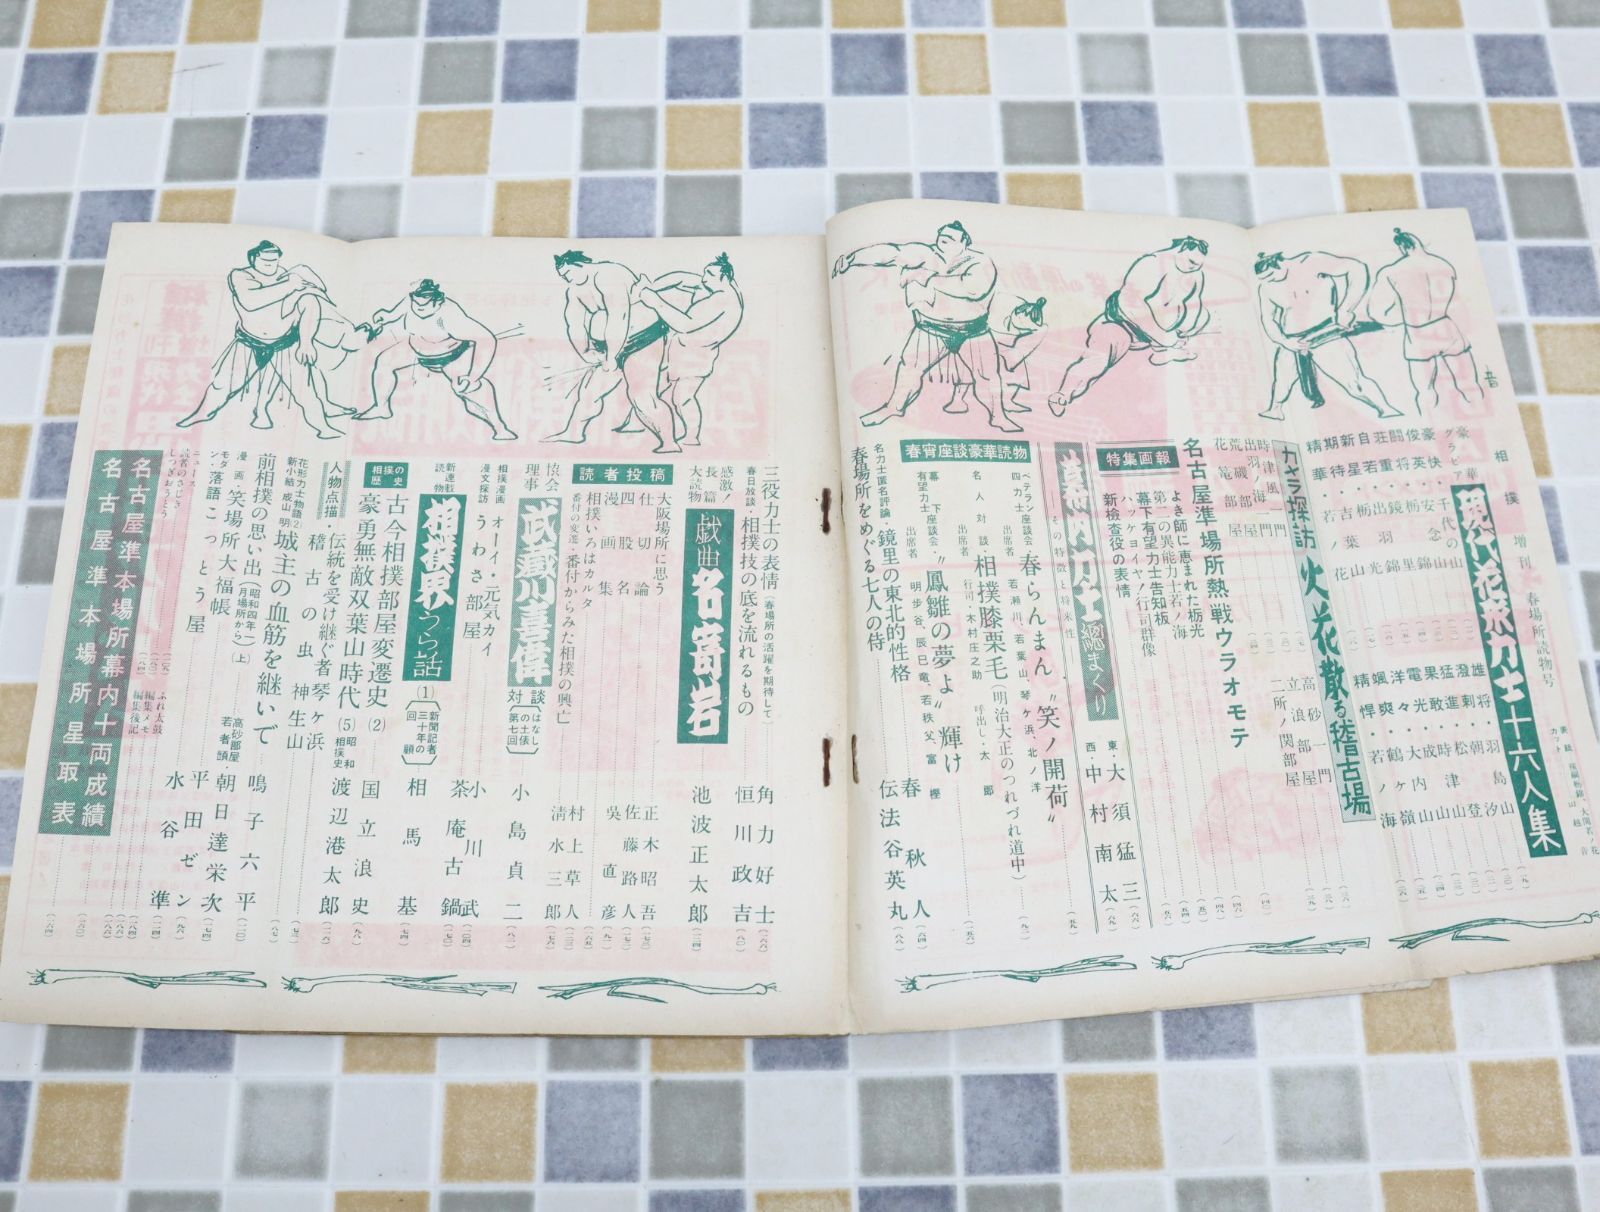 相撲 増刊 春場所読物号
豪華グラビア
現代花形力士十六人集
豪快・千代の山
英・安念山
俊将・栃錦
闘将・鏡里
重厚・出羽錦
自・栃光
新星・若葉山
期待・吉葉山
精華・若ノ花
雄将・羽島山
潑剌・朝汐
猛進・松登
果敢・時津山
電光・成山
洋々・大内山
颯爽・鶴ヶ嶺
精悍・若ノ海
カメラ探訪
火花散る稽古場
時津風一門
出羽ノ海一門
荒磯部屋
花籠部屋
高砂一門
立浪部屋
二所ノ関部屋
名古屋準場所熱戦ウラオモテ
特集画報
よき師に恵まれた栃光
第二の異能力士若ノ海
幕下有望力士告知板
ハッケヨイヤノ行司群像
新検査役の表情
東・大須猛三
西・中村南太
幕内力士總まくり
その特徴と将来性
春宵座談豪華読物
ベテラン座談会
四力士
春・らんまん“笑ノ開荷”
出席者 若瀬川、若葉山、琴ヶ浜、北ノ洋
名人対談
相撲膝栗毛(明治大正のつれづれ道中)
出席者 行司・木村庄之助 呼出し・太郎
幕下座談会
有望力士
“鳳雛の夢よ”輝け
出席者 明歩谷、辰巳竜、若秩父、富樫
名力士匿名評論・鏡里の東北的性格
春秋人
春場所をめぐる七人の侍
伝法谷英丸
三役力士の表情(春場所の活躍を期待して)
角力好士
春日放談・相撲技の底を流れるもの
恒川政吉
感激!長篇大読物
戯曲 名寄岩
池波正太郎
読者投稿
大阪場所に思う
正木昭吾
仕切論
佐藤路人
四股名
漫画集
吳直彦
相撲いろはカルタ
村上草人
番付の変遷・番付からみた相撲の興亡
清水三郎
懐会理事
武藏川喜偉
対談
はなしの土俵 第七回
小島貞二
相撲漫画
オーイ・元気カイ
小川武
漫文探訪
うわさ部屋
茶庵古鍋
新連載読物
相撲界うら話(1)
新聞記者三十年の回顧
相馬基
相撲の歴史
古今相撲部屋変遷史(2)
国立浪史
豪勇無敵双葉山時代(5)
昭和相撲史
渡辺港太郎
人物点描・伝統を受け継ぐ者琴ヶ浜
稽古の虫神生山
花形力士物語(2)
新小結 成山 明
城主の血筋を継いで
鳴子六平
前相撲の思い出(昭和四年一月場所から)(上)
高砂部屋 若者頭・朝日達栄次
漫画・笑場所大福帳
平田ゼン
モダン・落語こっとう屋
水谷準
ニュース
読者のさじき
しつぎおうとう
ふれ太鼓
編集メモ
編集後記
名古屋準本場所幕内十両成績
名古屋準本場所星取表